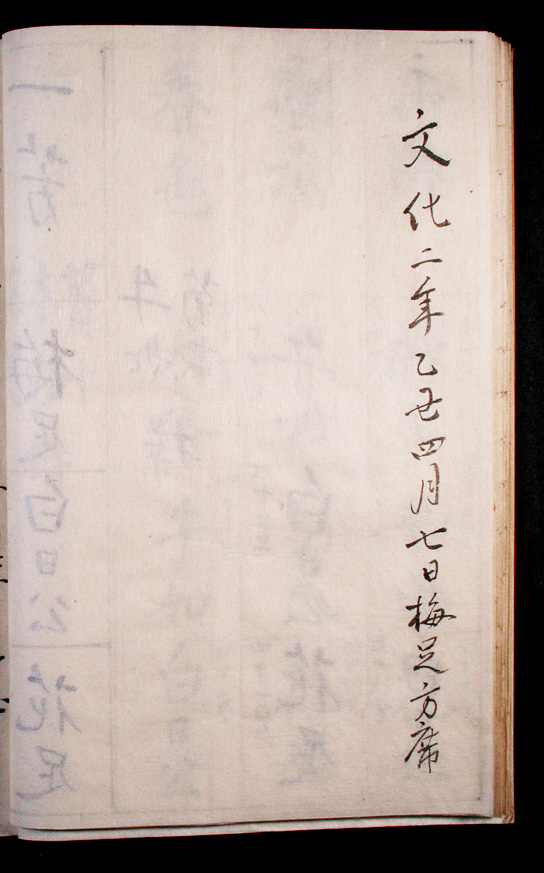 文化二年乙丑四月七日梅足方席